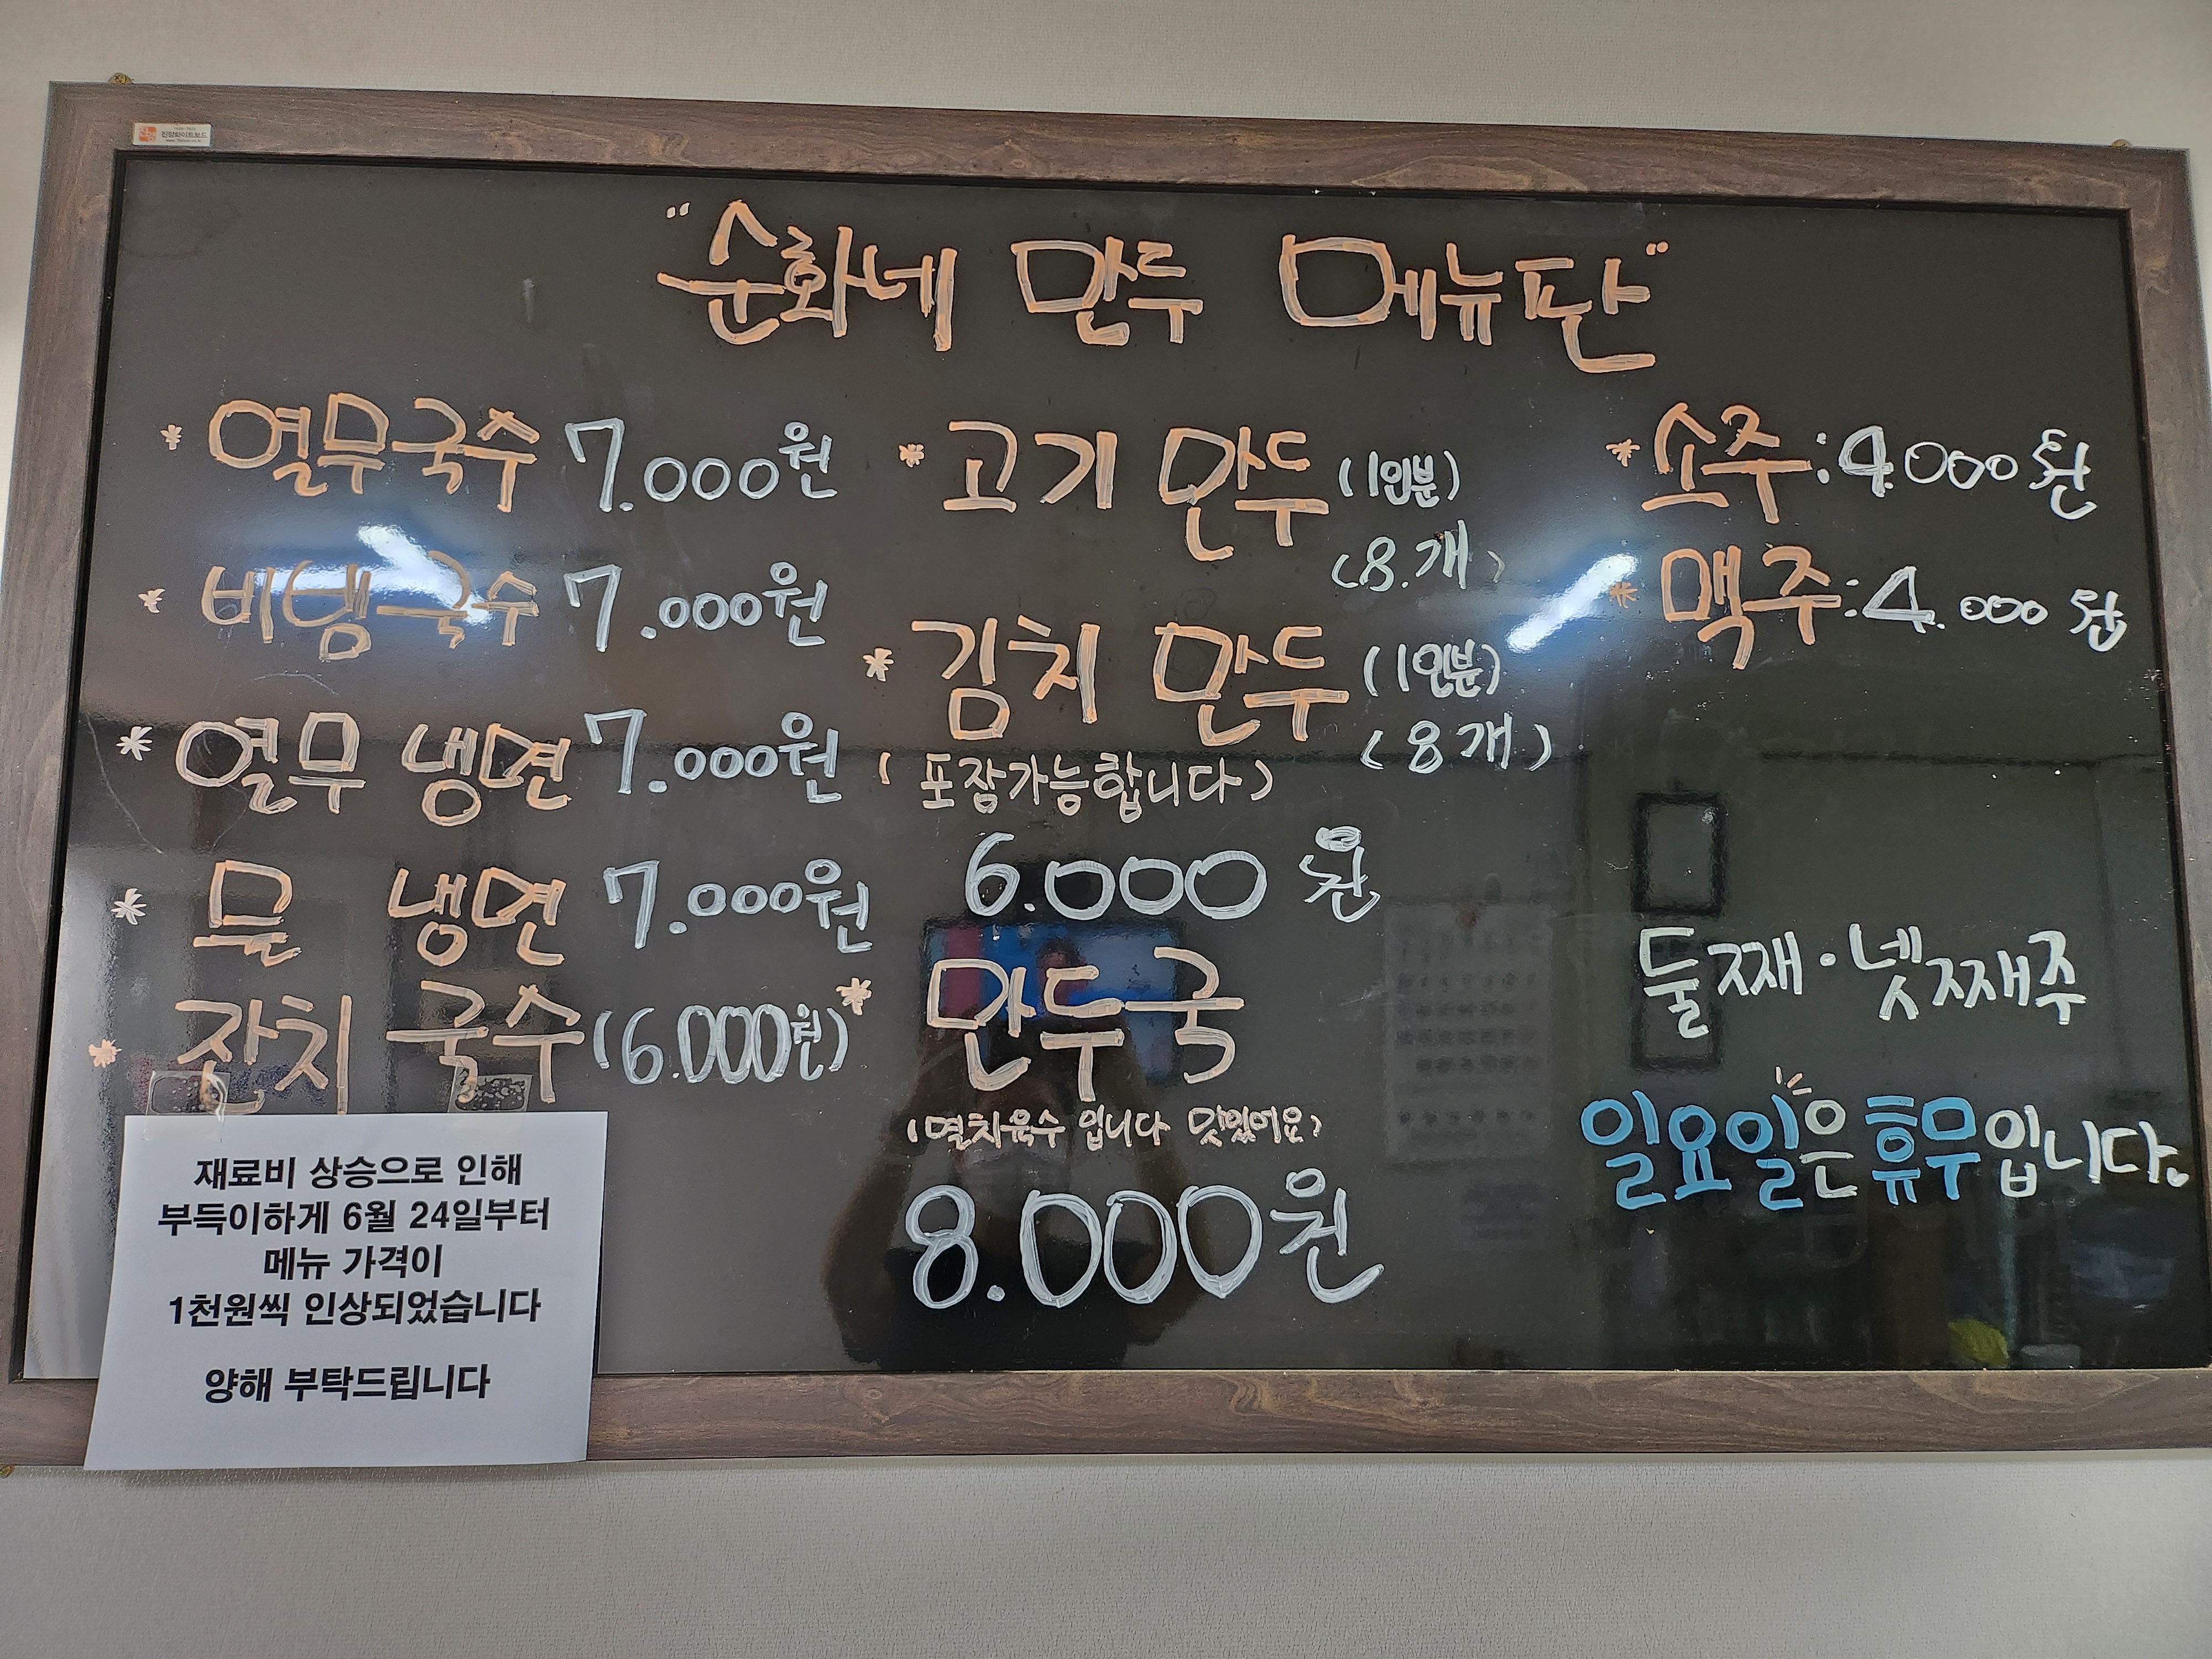 진양화이트보드
"순화네 만두 메뉴판"
* 열무국수 7.000원
* 비빔국수 7.000원
* 열무 냉면 7.000원
* 물 냉면 7.000원
* 잔치 국수(6.000원)
* 고기 만두(1인분)
(8.개)
* 김치 만두(1인분)
(8개)
(포장가능합니다)
6.000원
* 만두국
(멸치육수 입니다 맛있어요)
8.000원
* 소주:4.000원
* 맥주:4.000원
둘째·넷째주
일요일은 휴무입니다.
재료비 상승으로 인해
부득이하게 6월 24일부터
메뉴 가격이
1천원씩 인상되었습니다
양해 부탁드립니다